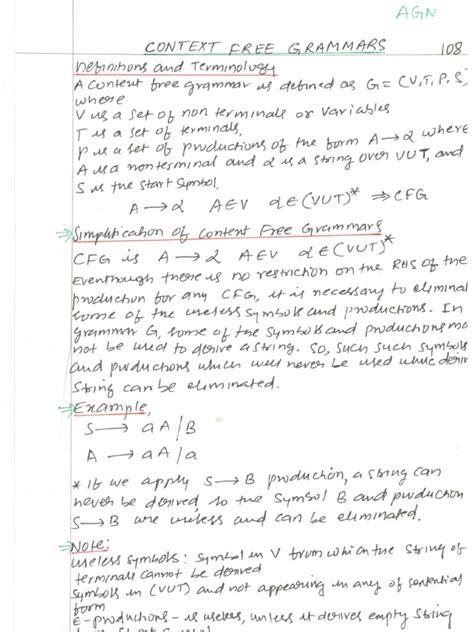 AGN
CONTEXT FREE GRAMMARS 108
Definitions and Terminology
A context free grammar is defined as G = (V, T, P, S
where
V is a set of non terminals or variables
T is a set of terminals,
P is a set of productions of the form A → α where
A is a nonterminal and α is a string over VUT, and
S is the start symbol.
A → α A∈V α∈(VUT)* ⇒ CFG
⇒ Simplification of Context Free Grammars
CFG is A → α A∈V α∈(VUT)*
Eventhough there is no restriction on the RHS of the
production for any CFG, it is necessary to eliminat
some of the useless symbols and productions. In
grammar G, some of the symbols and productions ma
not be used to derive a string. So, such such symbols
and productions which will never be used while derivi
string can be eliminated.
⇒ Example,
S → aA/B
A → aA/a
* If we apply S → B production, a string can
never be derived so the symbol B and production
S → B are useless and can be eliminated.
⇒ Note:
useless symbols: symbol in V from which the string of
terminals cannot be derived
symbols in (VUT) and not appearing in any of sentential
form
∈-productions - is useless, unless it derives empty string